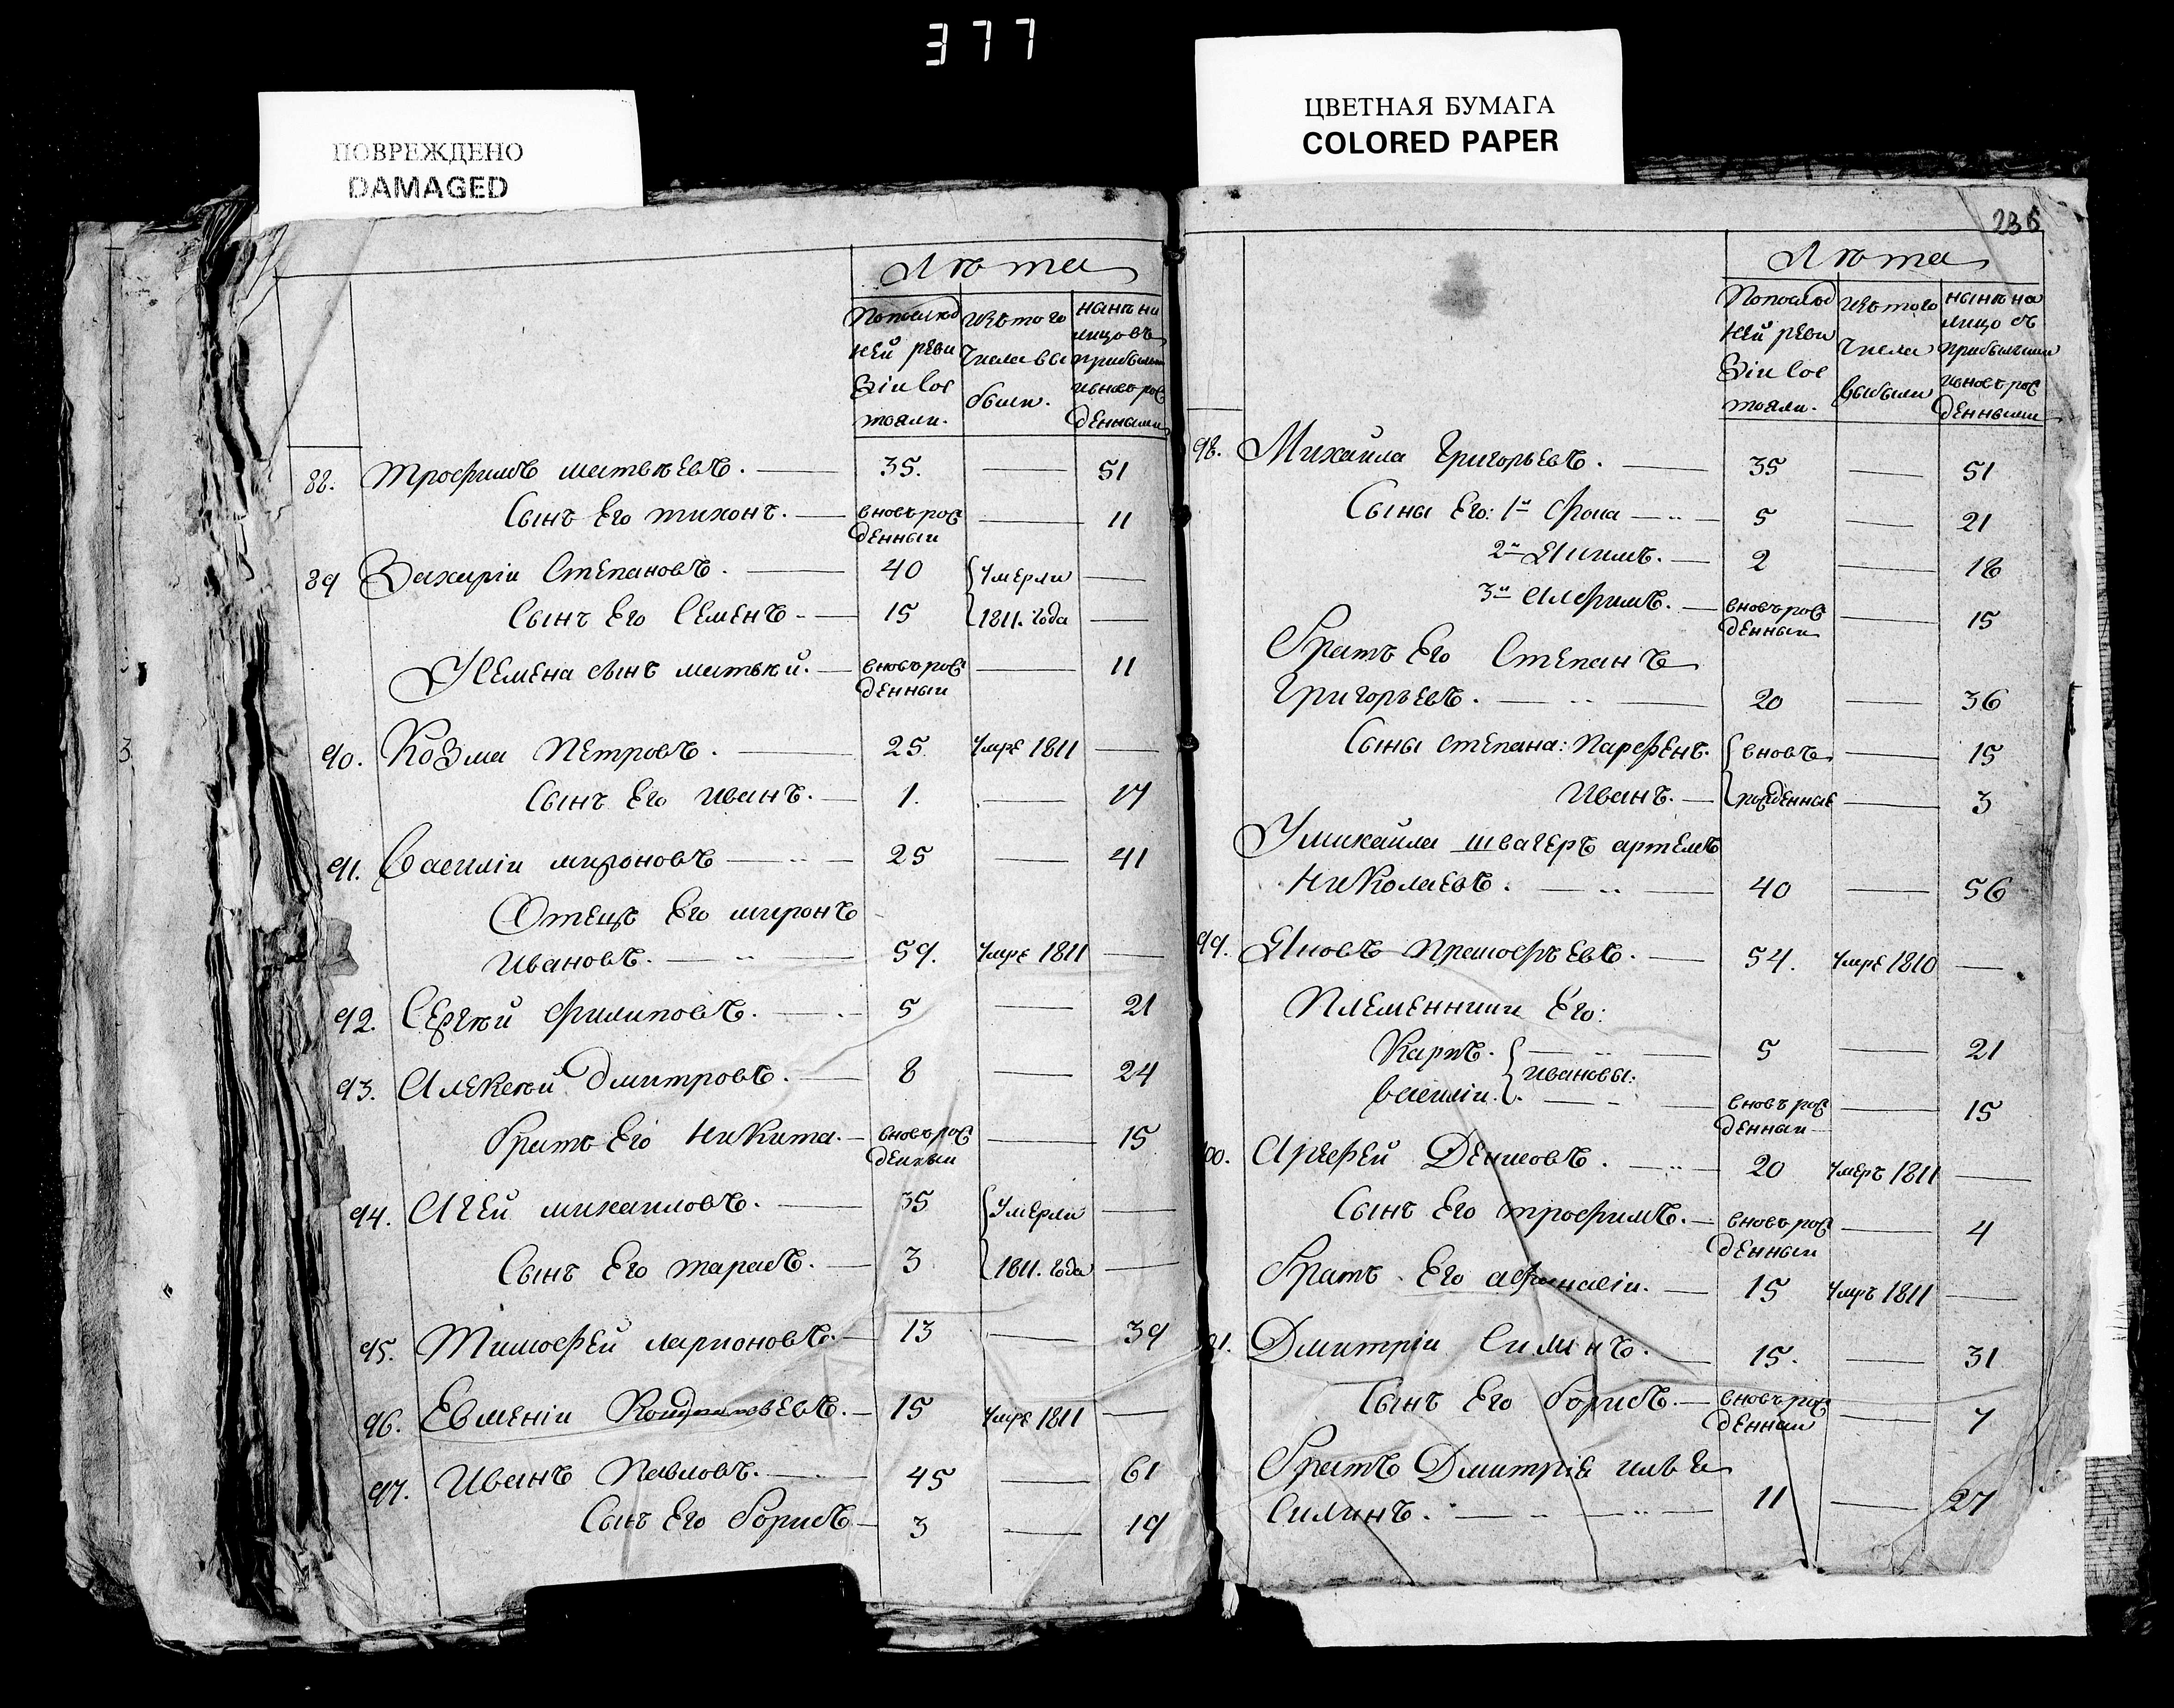 377
ПОВРЕЖДЕНО
DAMAGED
ЦВЕТНАЯ БУМАГА
COLORED PAPER
Лѣта
Попослѣд ней реви зіи сос тояли.
Изъ того числа вы были.
нынѣ на лицо съ прибылыми ивновь рож денными
88. Трофимъ матвѣевъ. 35. 51
Сынъ Его тихонъ. вновь рож денныи 11
89 Захаріи Степановъ. 40 умерли
Сынъ Его Семенъ 15 1811. года
У Семена сынъ матвѣй. вновь рож денныи 11
90. Козма Петровъ. 25 умре 1811
Сынъ Его иванъ. 1. 17
91. Василіи мироновъ 25 41
Отецъ Его миронъ
ивановъ. 59. умре 1811
92. Сергѣй филиповъ. 5 21
93. Алексѣй дмитровъ. 8 24
братъ Его никита. вновь рож денныи 15
94. Агѣй михаиловъ. 35 умерли
Сынъ Его тарасъ. 3 1811. года
95. Тимофей ларионовъ. 13 39
96. Евменіи 15 умре 1811
97. Иванъ Павловъ. 45 61
Сынъ Его борисъ 3 19
236
Лѣта
Попослѣд ней реви зіи сос тояли.
Изъ того числа выбыли
нынѣ на лицо съ прибылыми ивновь рож денными
98. Михайла Григорьевъ. 35 51
Сыны Его: 1й Фома 5 21
2й Якимъ. 2 18
3й Алфимъ. вновь рож денныи 15
братъ Его Степанъ
Григорьевъ. 20 36
Сыны степана: Парфенъ. вновь 15
Иванъ. рожденные 3
Умихайла швагеръ артемъ
Николаевъ. 40 56
99. Яковъ Прокофьевъ. 54. умре 1810
Племянники Его:
Карпъ. 5 21
ивановы:
василіи. вновь рож денныи 15
100. Арефей Денисовъ. 20 умеръ 1811
Сынъ Его трофимъ. вновь рож денныи 4
братъ Его афонасіи. 15 умръ 1811
Дмитріи Силинъ. 15. 31
Сынъ Его борисъ. вновь рож денныи 7
братъ Дмитріе илья
Силинъ. 11 27